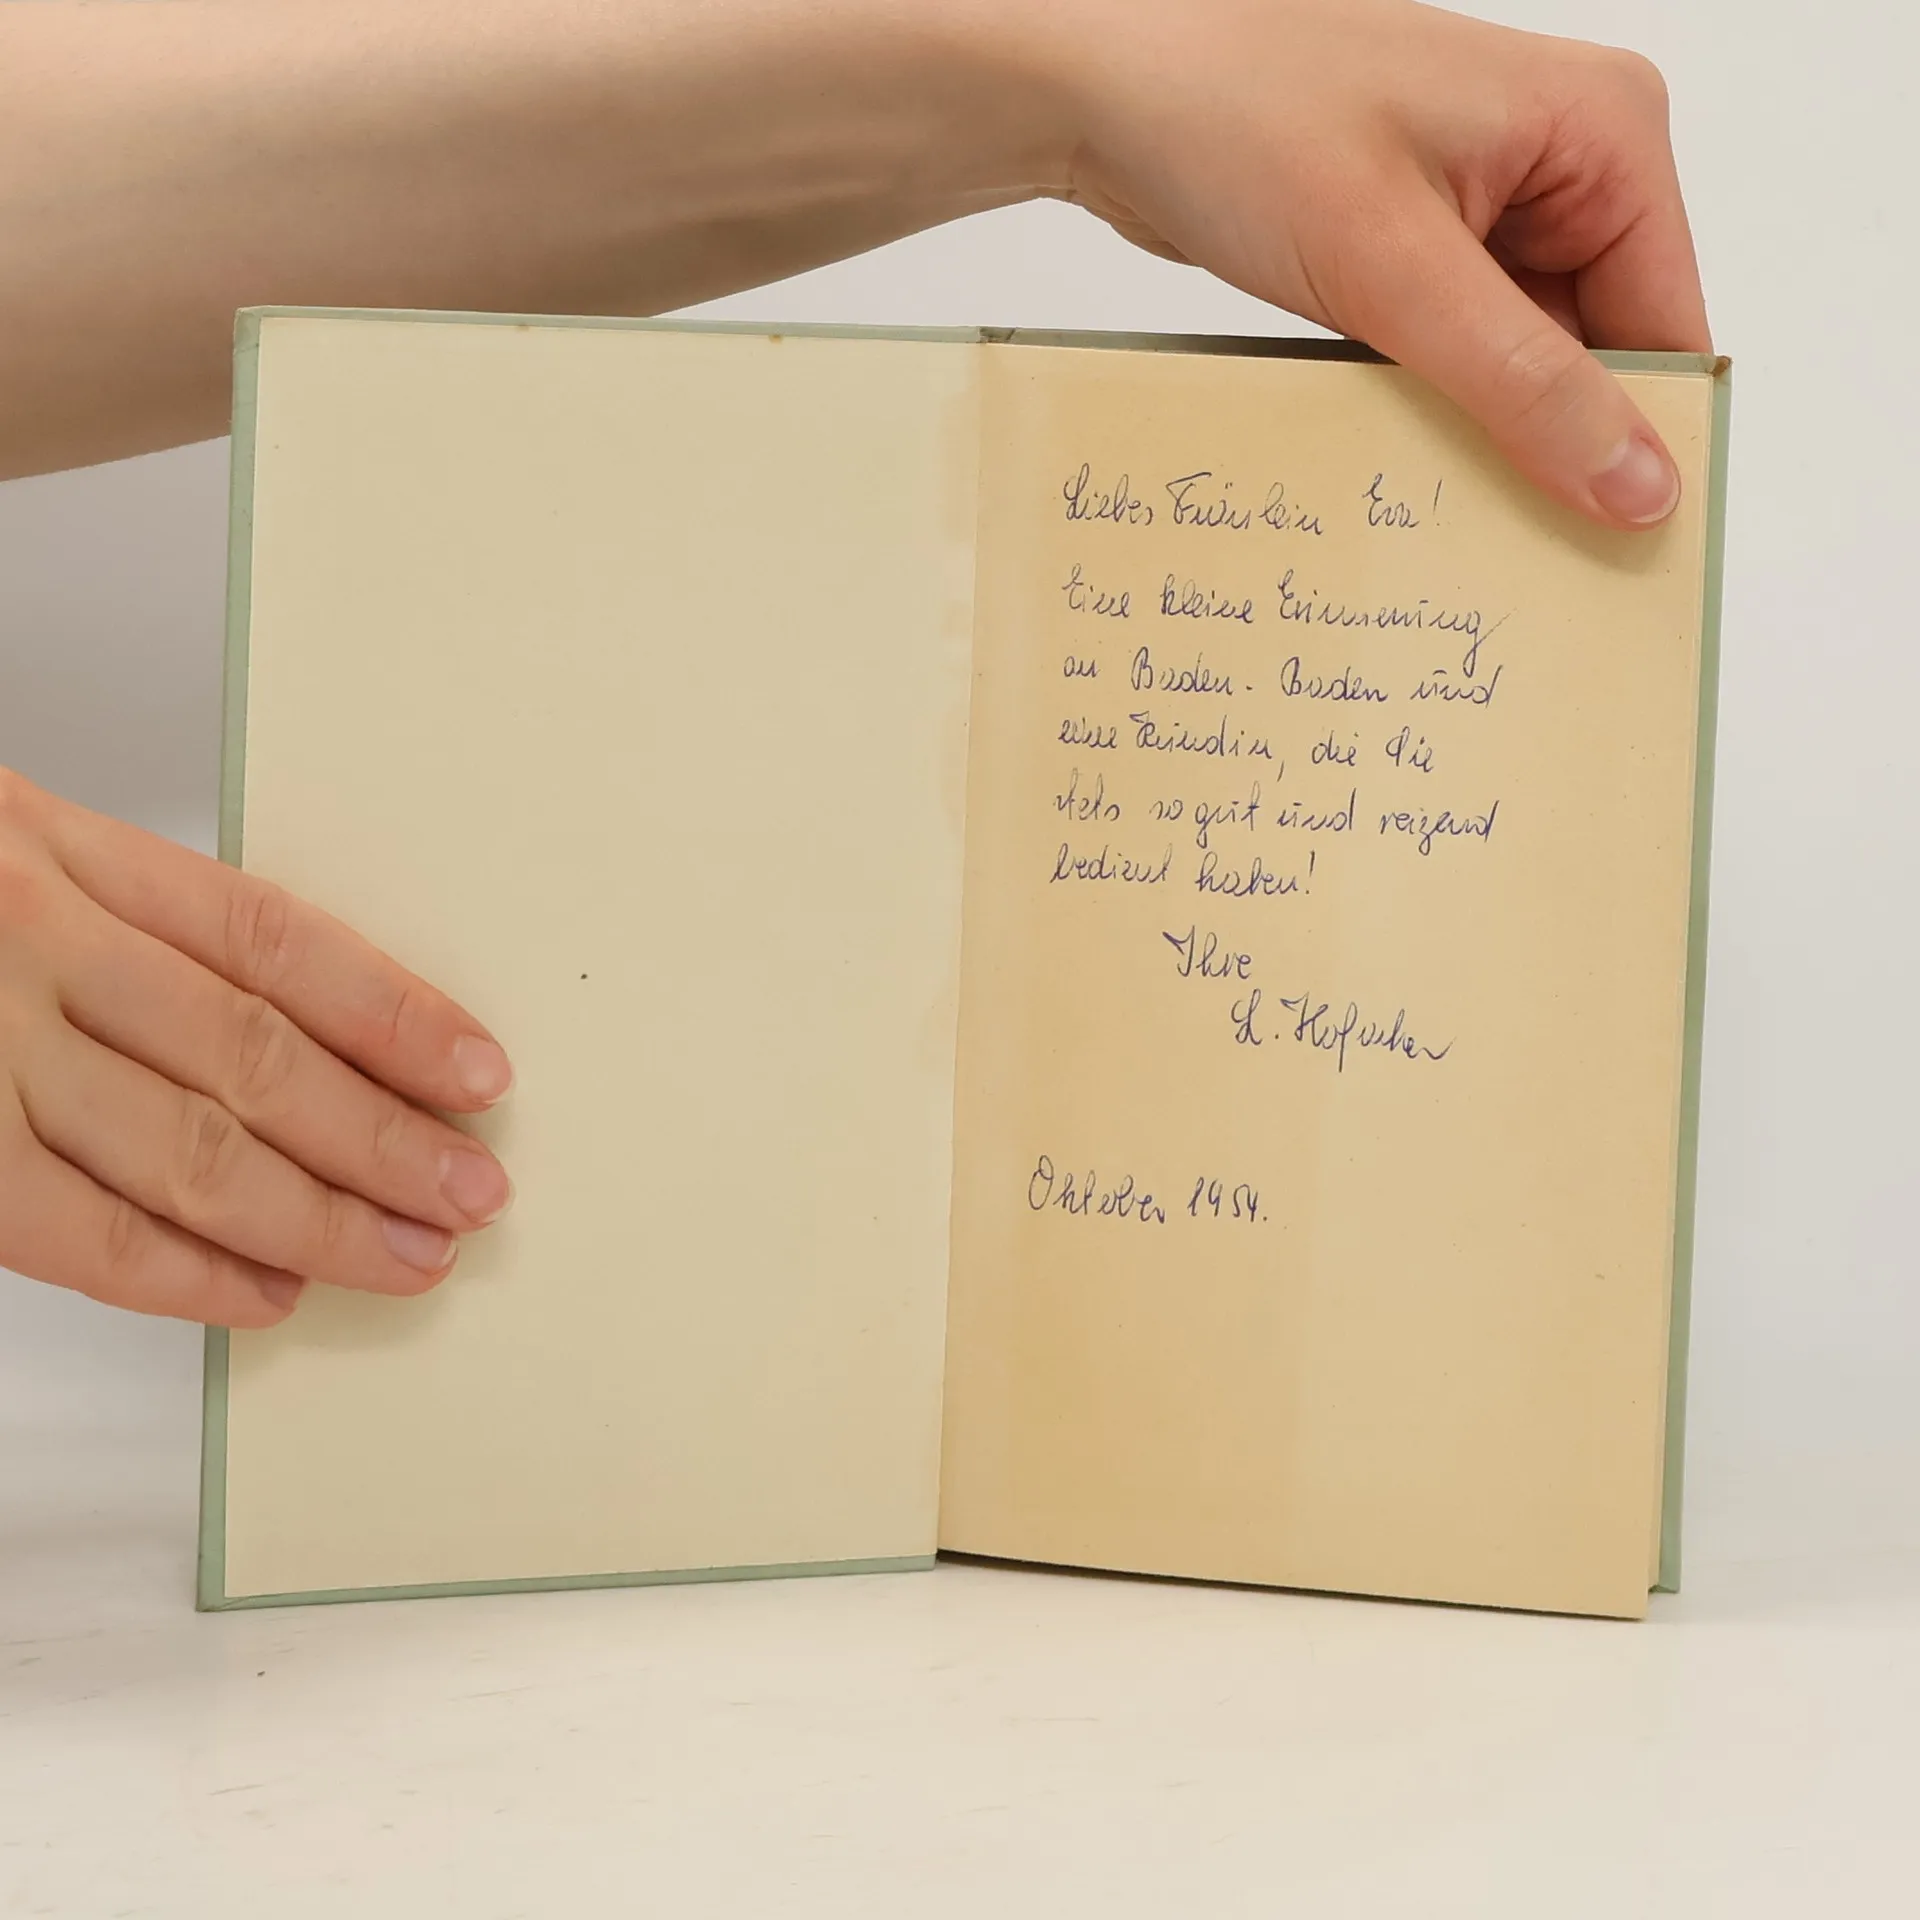 Liebes Fräulein Eva!
Eine kleine Erinnerung
an Baden-Baden und
eine Kundin, die Sie
stets so gut und reizend
bedient haben!
Ihre
L.
Oktober 1954.